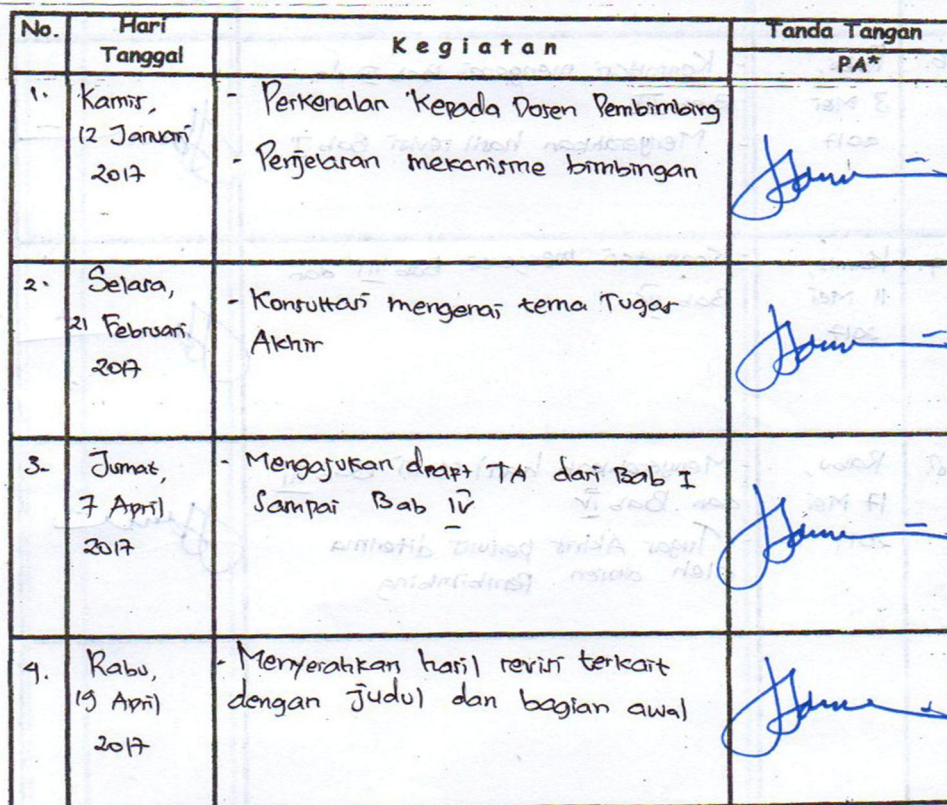 No.
Hari
Tanggal
Kegiatan
Tanda Tangan
PA*
1.
Kamis,
12 Januari
2017
Perkenalan Kepada Dosen Pembimbing
- Penjelasan mekanisme bimbingan
2.
Selasa,
21 Februari
2017
- Konsultasi mengenai tema Tugas
Akhir
3.
Jumat,
7 April
2017
- Mengajukan draft TA dari Bab I
Sampai Bab IV
4.
Rabu,
19 April
2017
- Menyerahkan hasil revisi terkait
dengan judul dan bagian awal